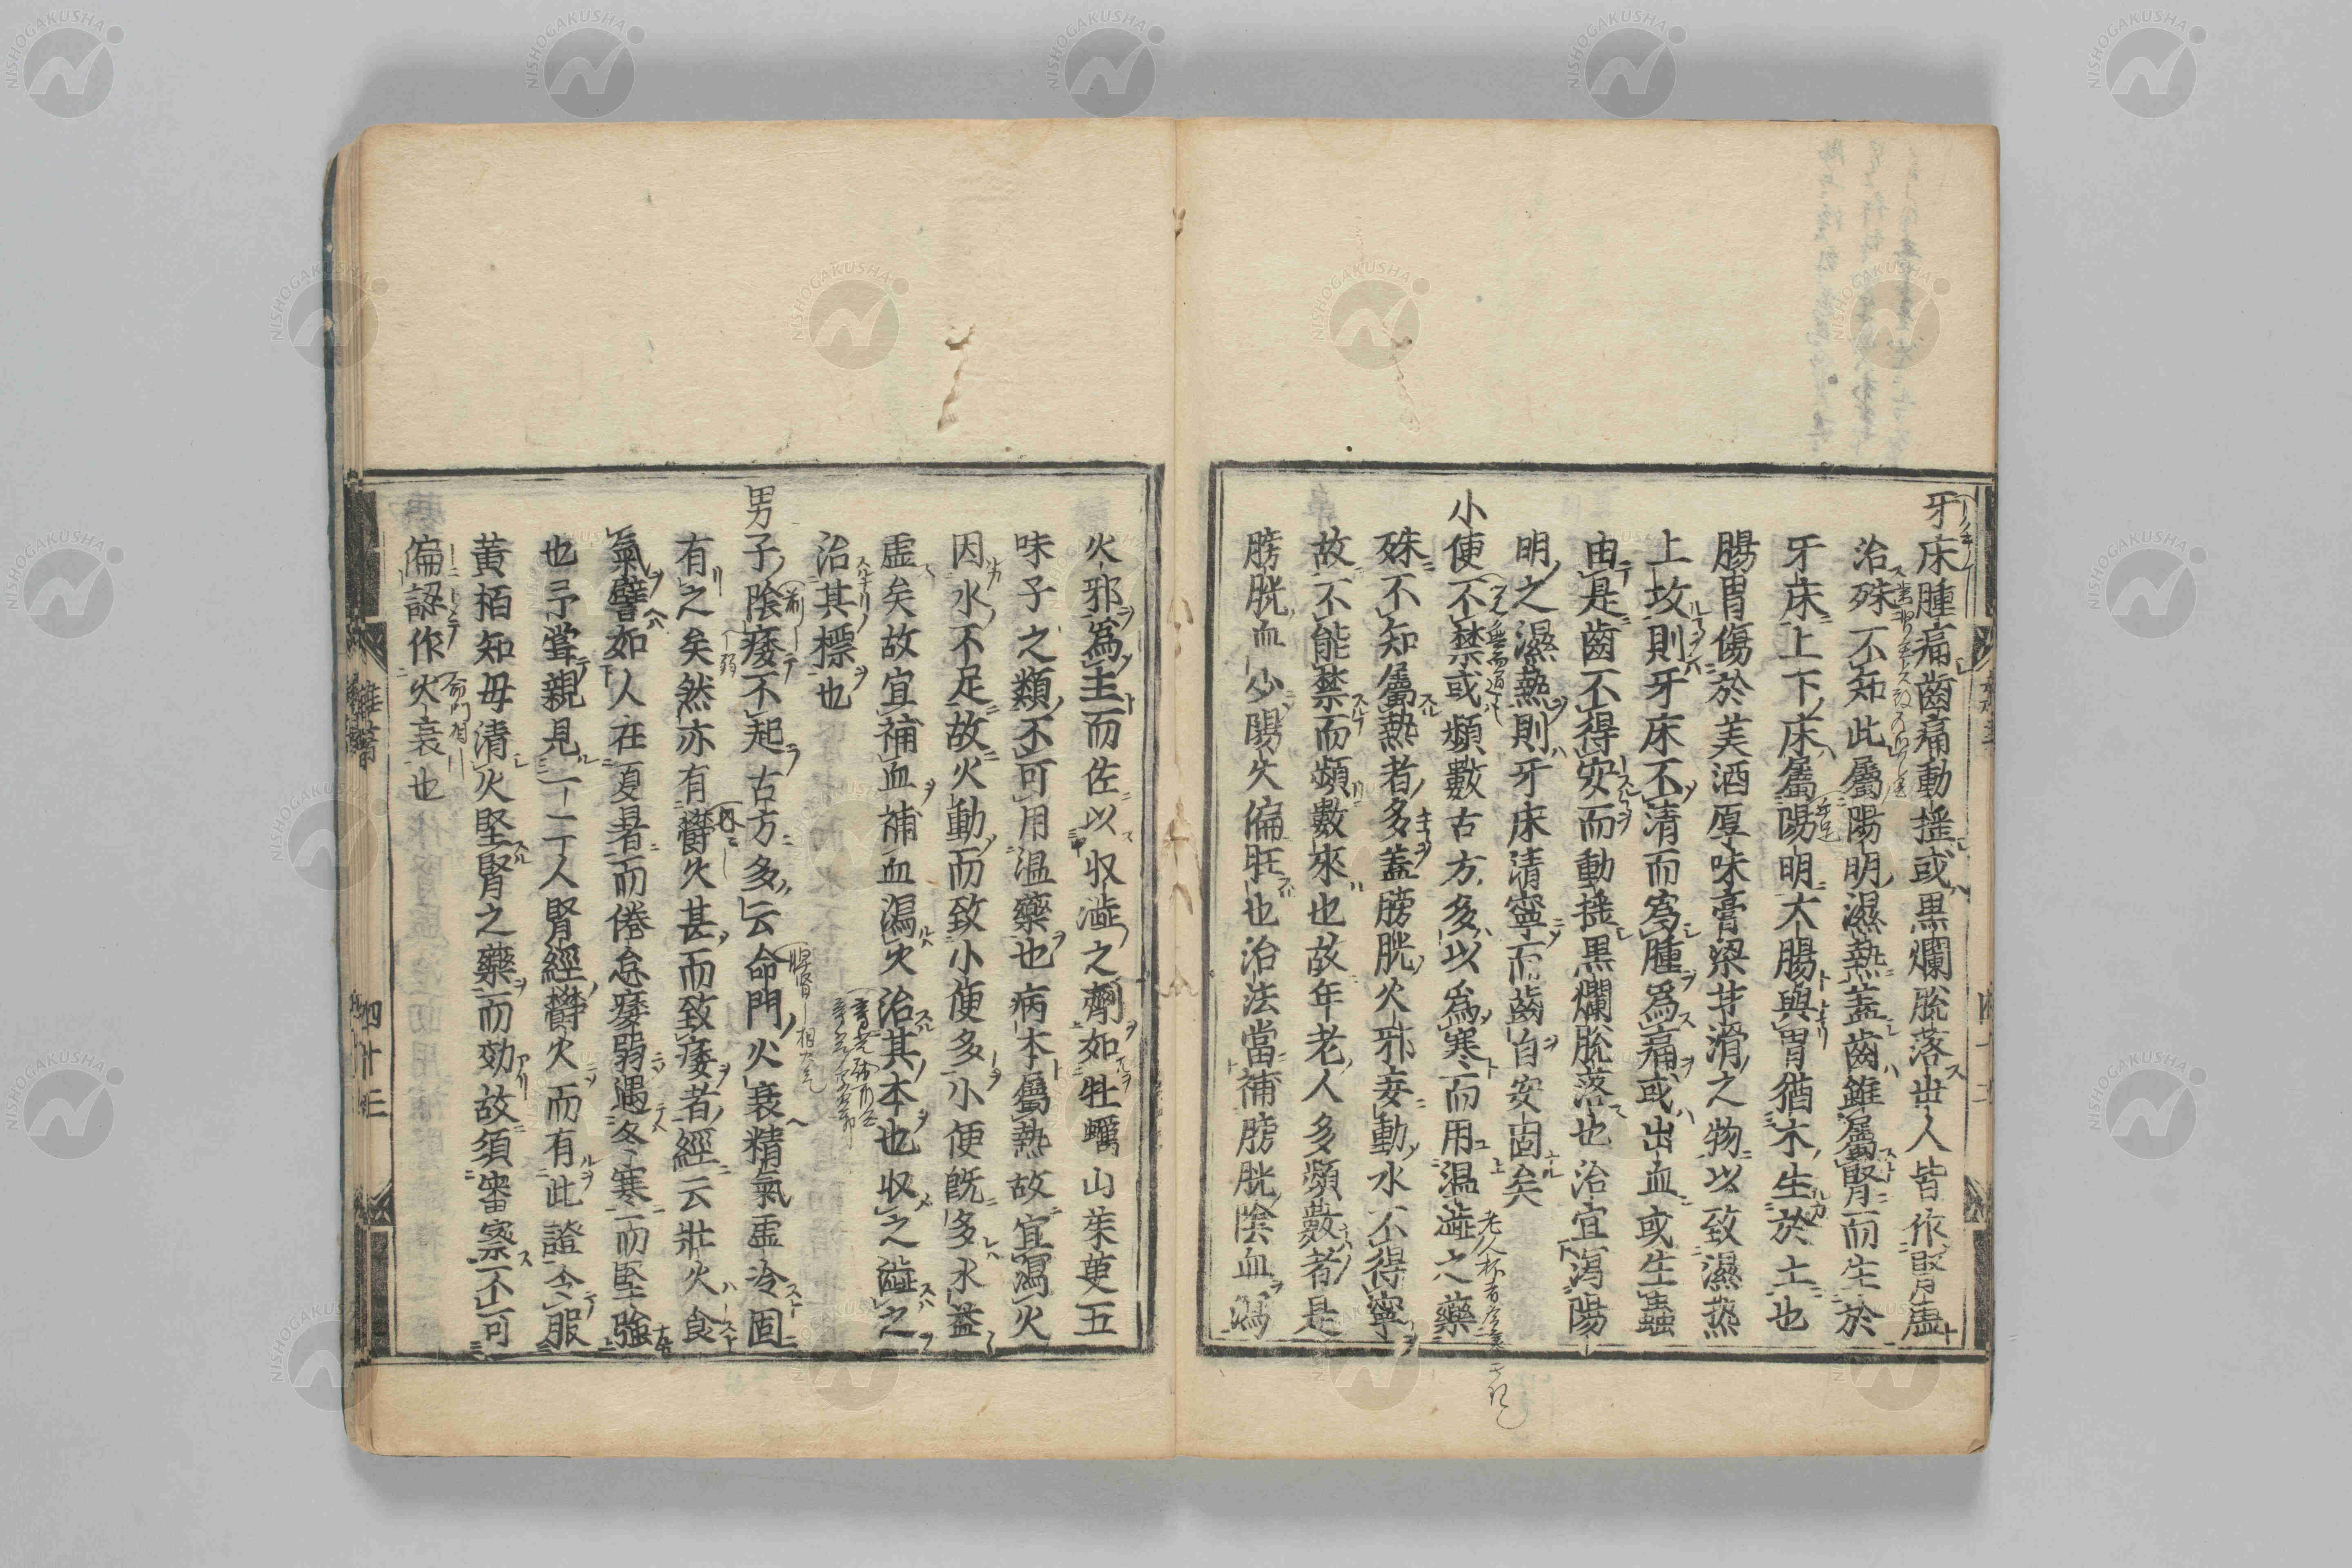 牙床腫痛齒痛動揺或黒爛脫落世人皆作腎虚
治殊不知此屬陽明濕熱蓋齒雖屬腎而生於
牙床上下床屬陽明大腸與胃猶木生於土也
腸胃傷於美酒厚味膏粱甘滑之物以致濕蒸
上攻則牙床不清而為腫為痛或出血或生蟲
由是齒不得安而動揺黒爛脫落也治宜瀉陽
明之濕熱則牙床清寧而齒自安固矣
小便不禁或頻數古方多以為寒而用温澁之藥
殊不知屬熱者多蓋膀胱火邪妄動水不得寧
故不能禁而頻數來也故年老人多頻數者是
膀胱血少陽火偏旺也治法當補膀胱陰血瀉
火邪為主而佐以収澁之劑如牡蠣山茱萸五
味子之類不可用温藥也病本屬熱故宜瀉火
因水不足故火動而致小便多小便既多水益
虚矣故宜補血補血瀉火治其本也収之澁之
治其標也
男子陰痿不起古方多云命門火衰精氣虚冷固
有之矣然亦有欝火甚而致痿者經云壯火食
氣譬如人在夏暑而倦怠痿弱遇冬寒而堅強
也予嘗親見一二人腎經欝火而有此證令服
黄栢知母清火堅腎之藥而効故須審察不可
偏認作火衰也
雜著
四十三
NISHOGAKUSHA